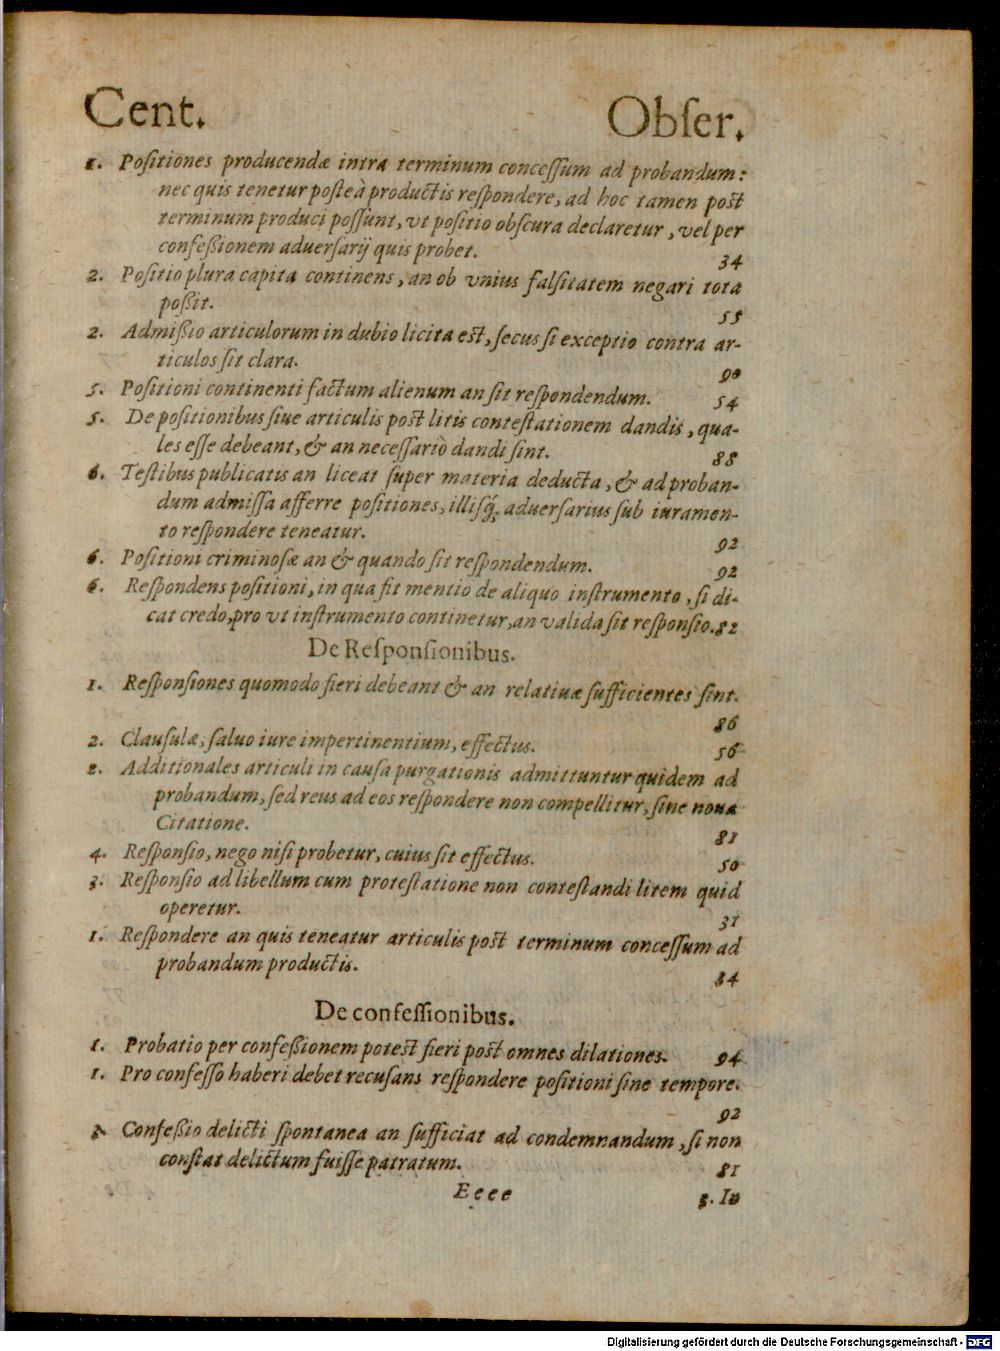 Cent. Obſer.
1. Poſitiones producendæ intra terminum conceſſum ad probandum:
nec quis tenetur poſteà productis reſpondere, ad hoc tamen poſt
terminum produci poſſunt, vt poſitio obſcura declaretur, vel per
confeßionem aduerſarij quis probet. 34
2. Poſitio plura capita continens, an ob vnius falſitatem negari tota
poßit. 55
2. Admißio articulorum in dubio licita eſt, ſecus ſi exceptio contra ar-
ticulos ſit clara. 90
5. Poſitioni continenti factum alienum an ſit reſpondendum. 54
5. De poſitionibus ſiue articulis poſt litis conteſtationem dandis, qua-
les eſſe debeant, & an neceſſariò dandi ſint. 88
6. Teſtibus publicatis an liceat ſuper materia deducta, & ad proban-
dum admiſſa afferre poſitiones, illiſq́; aduerſarius ſub iuramen-
to reſpondere teneatur. 92
6. Poſitioni criminoſæ an & quando ſit reſpondendum. 92
6. Reſpondens poſitioni, in qua fit mentio de aliquo inſtrumento, ſi di-
cat credo, pro vt inſtrumento continetur, an valida ſit reſponſio. 82
De Reſponſionibus.
1. Reſponſiones quomodo fieri debeant & an relatiuæ ſufficientes ſint.
86
2. Clauſulæ, ſaluo iure impertinentium, effectus. 56
2. Additionales articuli in cauſa purgationis admittuntur quidem ad
probandum, ſed reus ad eos reſpondere non compellitur, ſine noua
Citatione. 81
4. Reſponſio, nego niſi probetur, cuius ſit effectus. 50
3. Reſponſio ad libellum cum proteſtatione non conteſtandi litem quid
operetur. 31
1. Reſpondere an quis teneatur articulis poſt terminum conceſſum ad
probandum productis. 34
De confeſſionibus.
1. Probatio per confeßionem poteſt fieri poſt omnes dilationes. 94
1. Pro confeſſo haberi debet recuſans reſpondere poſitioni ſine tempore.
92
Confeßio delicti ſpontanea an ſufficiat ad condemnandum, ſi non
conſtat delictum fuiſſe patratum. 81
Eeee 3. In
Digitalisierung gefördert durch die Deutsche Forschungsgemeinschaft - DFG